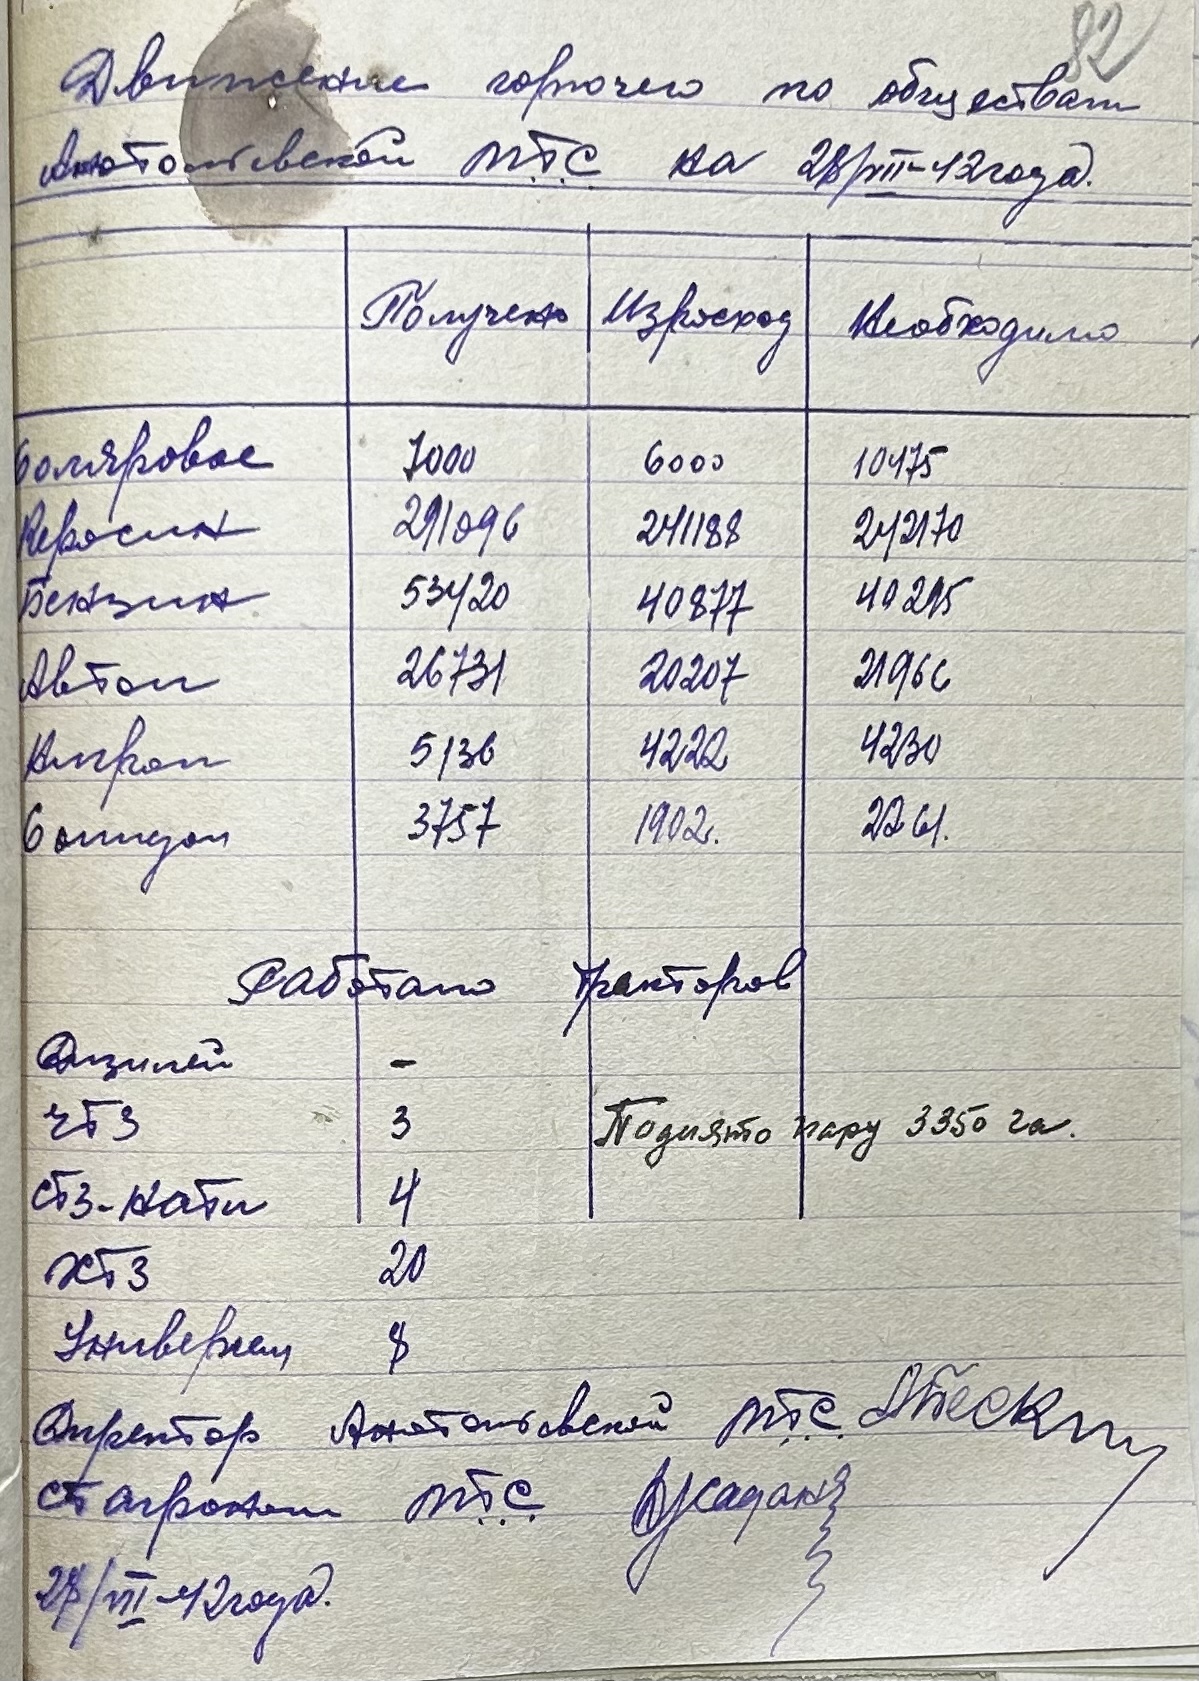 82
Движение горючего по обществам
Анатольевской МТС на 28/VIII-42 года.
Получено Израсход Необходимо
Соляровое 7000 6000 10475
Керосин 291096 241188 242170
Бензин 53420 40877 40295
Автол 26731 20207 21966
Нигрол 5136 4222 4230
Солидол 3757 1902. 2261.
Работало тракторов
Дизилей -
ЧТЗ 3 Поднято пару 3350 га.
СТЗ-Нати 4
ХТЗ 20
Универсал 8
Директор Анатольевской МТС
Ст агроном МТС
28/VIII-42 года.